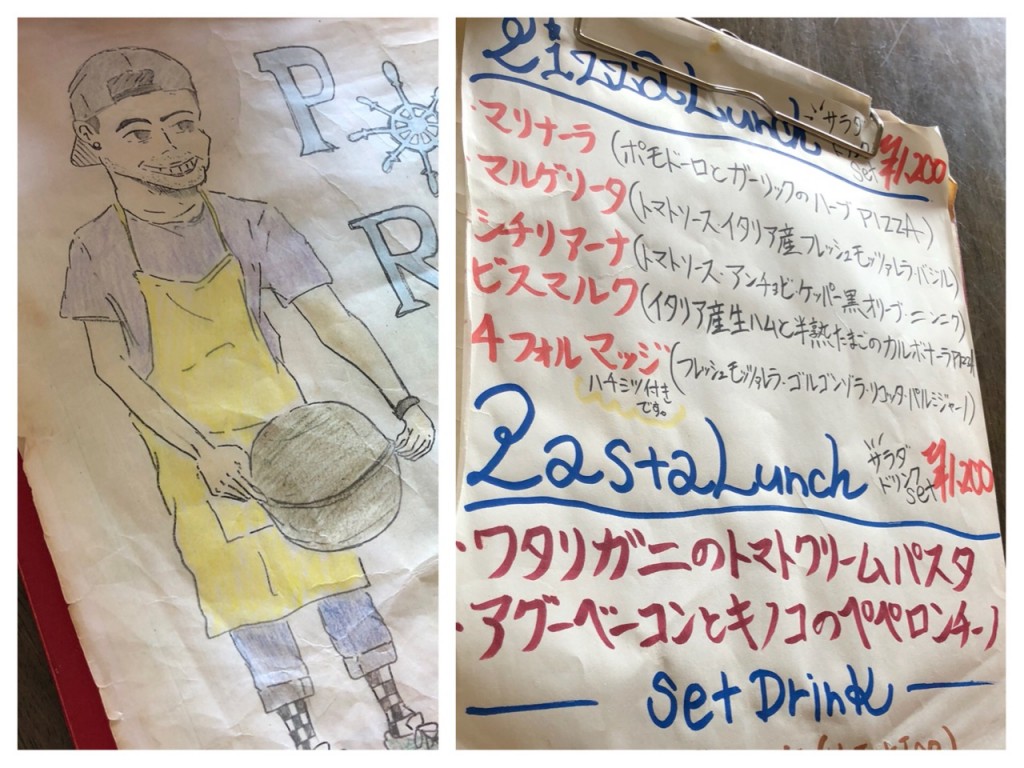 P
R
Pizza Lunch サラダ set ¥1,200
・マリナーラ (ポモドーロとガーリックのハーブPIZZA)
・マルゲリータ (トマトソース・イタリア産フレッシュモッツァレラ・バジル)
シチリアーナ (トマトソース・アンチョビ・ケッパー・黒オリーブ・ニンニク)
ビスマルク (イタリア産生ハムと半熟たまごのカルボナーラPIZZA)
4フォルマッジ (フレッシュモッツァレラ・ゴルゴンゾラ・リコッタ・パルミジャーノ)
ハチミツ付き
です。
Pasta Lunch サラダ ドリンク set ¥1,200
・ワタリガニのトマトクリームパスタ
・アグーベーコンとキノコのペペロンチーノ
Set Drink